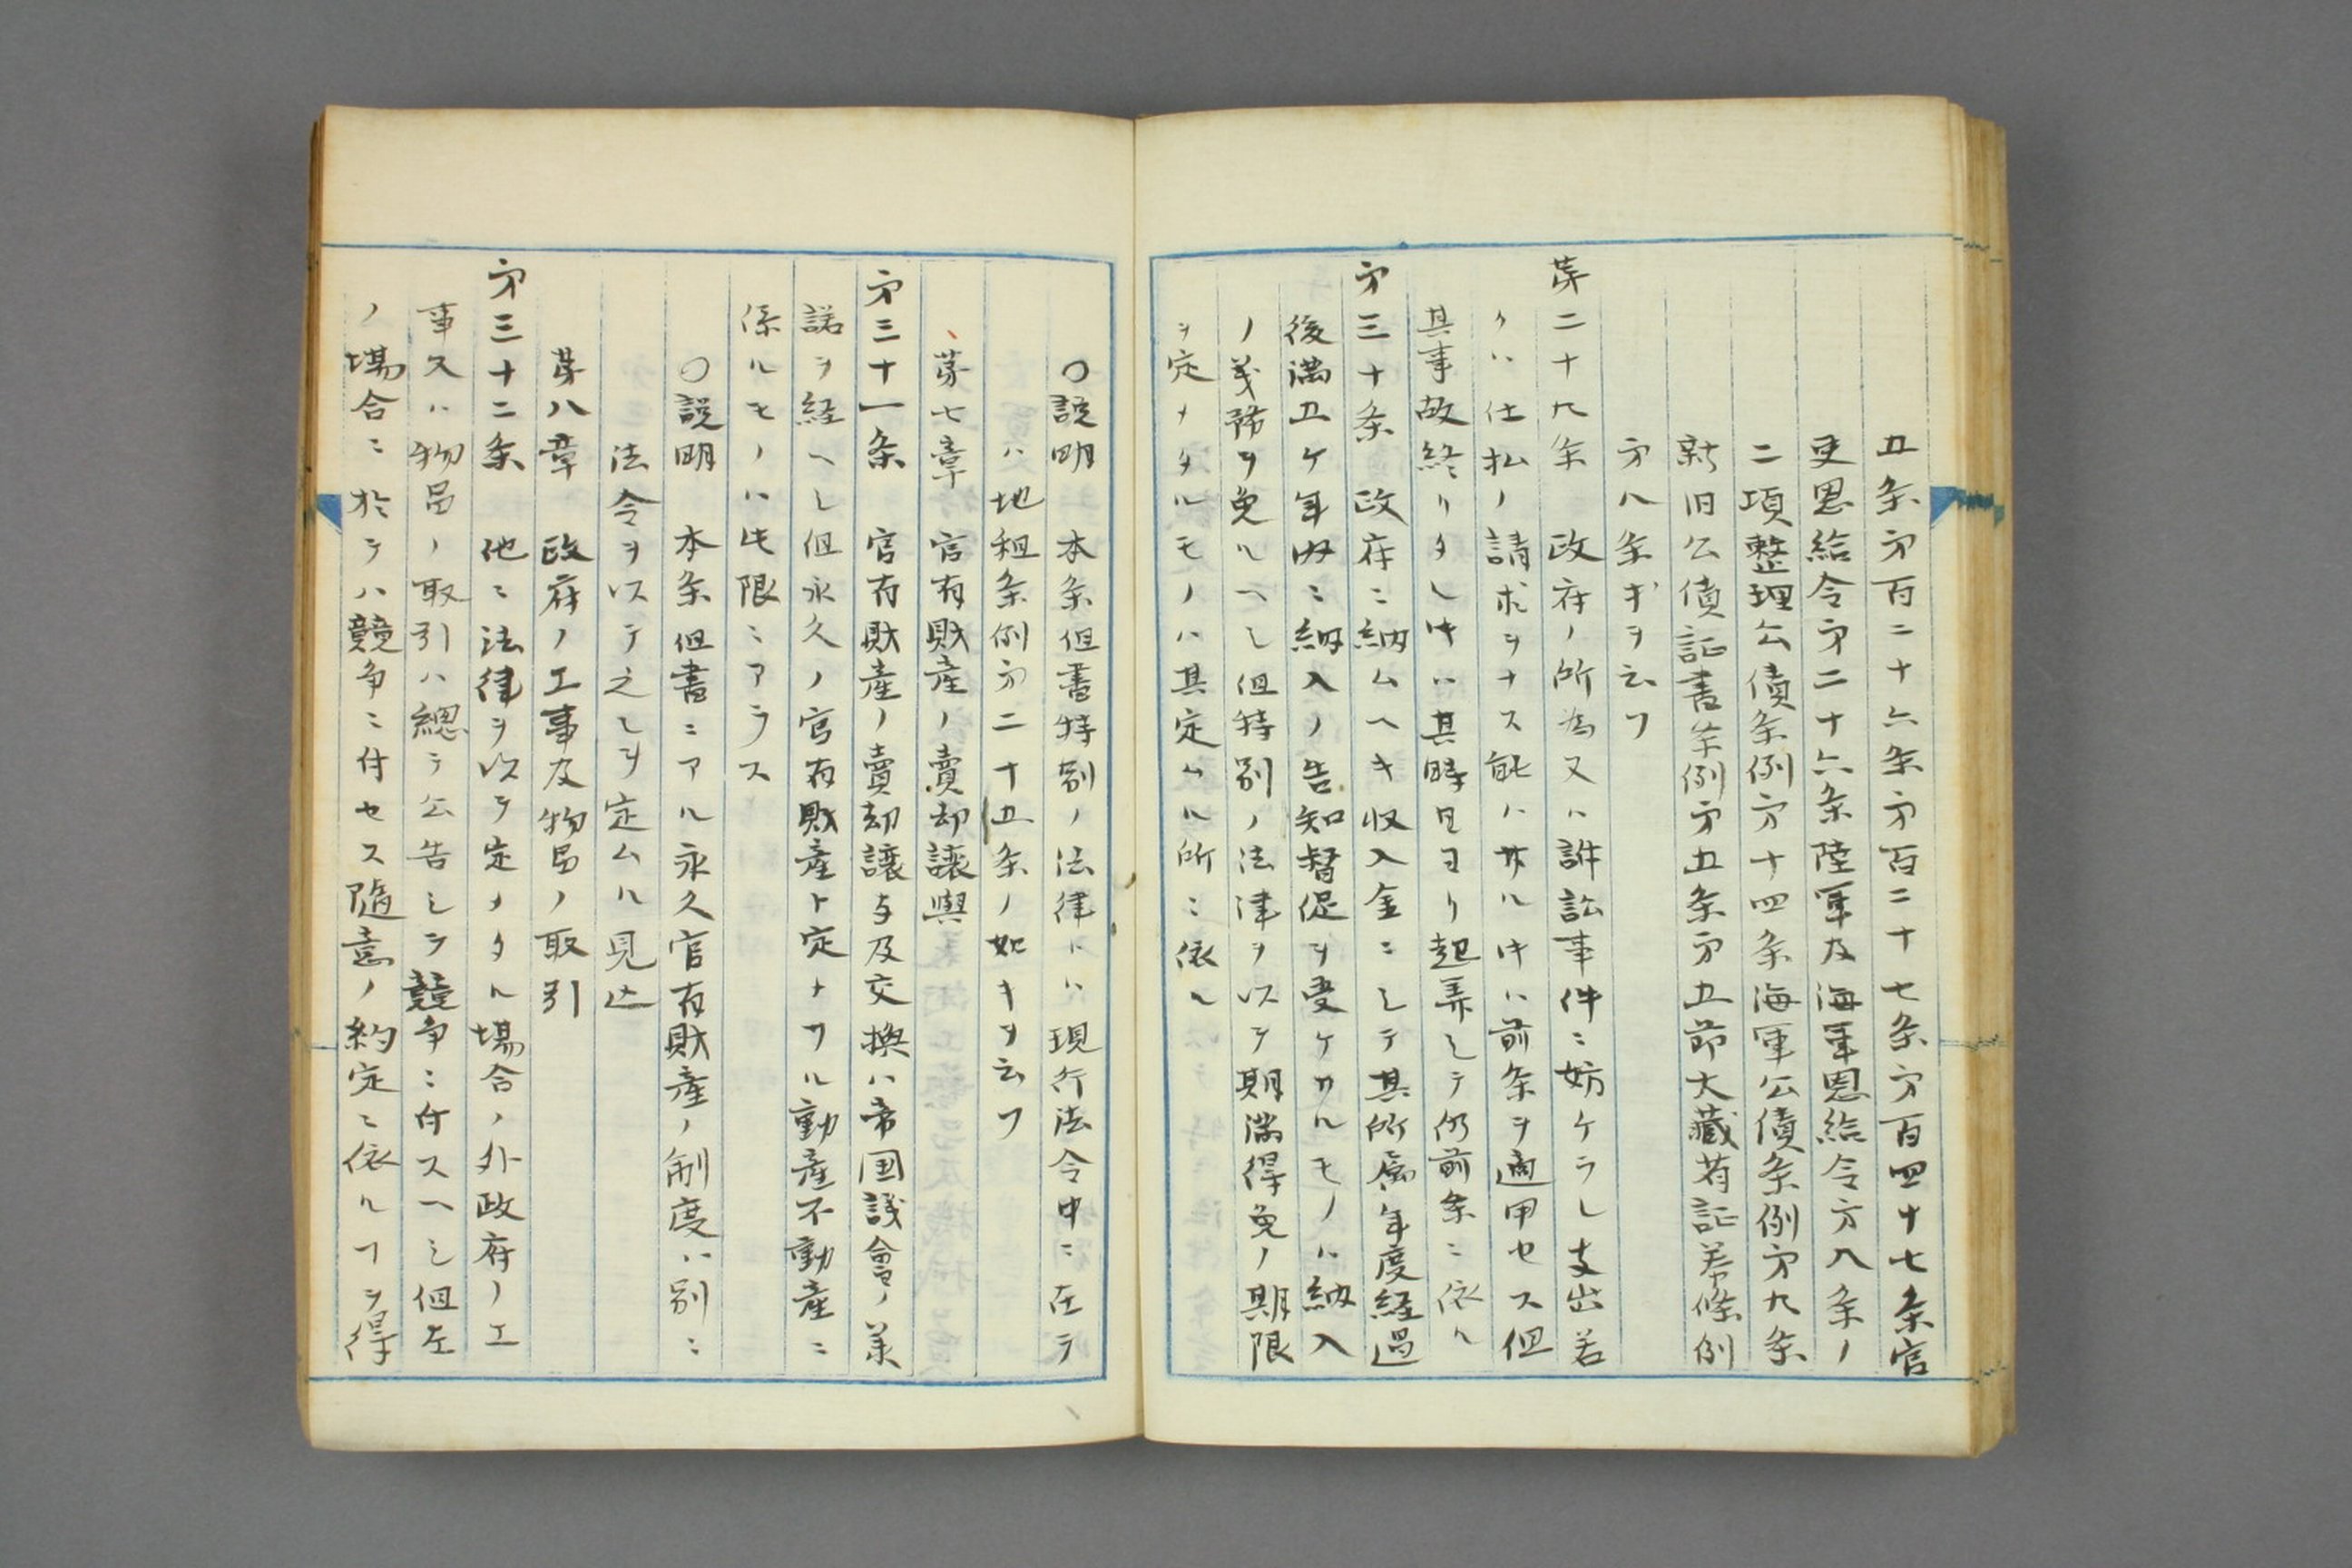 五条第百二十六条第百二十七条第百四十七条官
吏恩給令第二十六条陸軍及海軍恩給令第八条ノ
二項整理公債条例第十四条海軍公債条例第九条
新旧公債証書条例第五条第五節大蔵省証券條例
第八条才ヲ云フ
第二十九条 政府ノ所為又ハ訴訟事件ニ妨ケラレ支出若
クハ仕払ノ請求ヲナス能ハサル𪜈ハ前条ヲ適用セス但
其事故終リタレ𪜈ハ其時日ヨリ起算シテ仍前条ニ依ル
第三十条 政府ニ納ムヘキ収入金ニシテ其所属年度経過
後満五ケ年内ニ納入ノ告知督促ヲ受ケサルモノハ納入
ノ義務ヲ免ルヘシ但特別ノ法律ヲ以テ期満得免ノ期限
ヲ定メタルモノハ其定ムル所ニ依ル
〇説明 本条但書特別ノ法律トハ現行法令中ニ在テ
ハ地租条例第二十五条ノ如キヲ云フ
第七章 官有財産ノ賣却譲與
第三十一条 官有財産ノ賣却譲与及交換ハ帝国議會ノ承
諾ヲ経ヘシ但永久ノ官有財産ト定メサル動産不動産ニ
係ルモノハ此限ニアラス
〇説明 本条但書ニアル永久官有財産ノ制度ハ別ニ
法令ヲ以テ之レヲ定ムル見込
第八章 政府ノ工事及物品ノ取引
第三十二条 他ニ法律ヲ以テ定メタル場合ノ外政府ノ工
事又ハ物品ノ取引ハ總テ公告シテ競争ニ付スヘシ但左
ノ場合ニ於テハ競争ニ付セス随意ノ約定ニ依ルヿヲ得